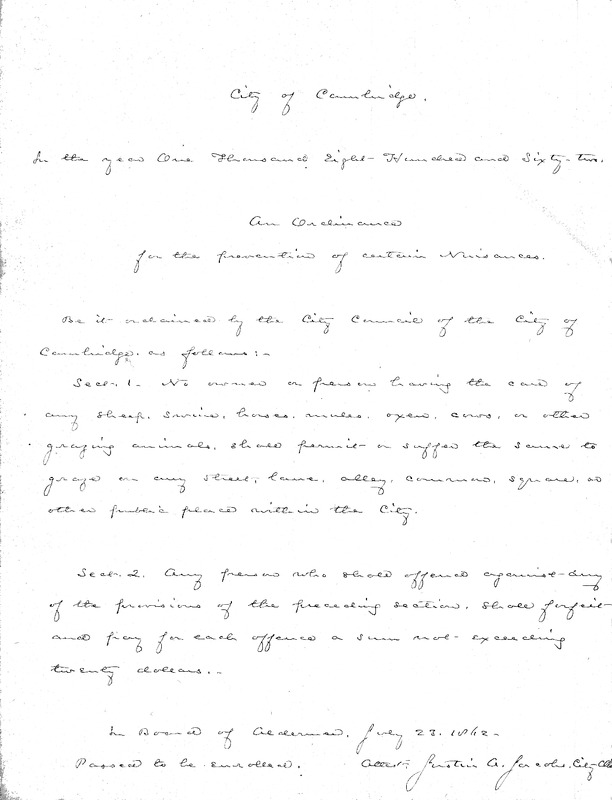 City of Cambridge.
In the year One Thousand Eight Hundred and Sixty-two.
An Ordinance
for the prevention of certain Nuisances.
Be it ordained by the City Council of the City of
Cambridge, as follows:-
Sect. 1. No owner or person having the care of
any sheep, swine, horses, mules, oxen, cows, or other
grazing animals, shall permit or suffer the same to
graze on any street, lane, alley, common, square, or
other public place within the City.
Sect. 2. Any person who shall offend against any
of the provisions of the preceding section, shall forfeit
and pay for each offence a sum not exceeding
twenty dollars.-
In Board of Aldermen, July 23. 1862.
Passed to be enrolled. Attest, Justin A. Jacobs, City Clk